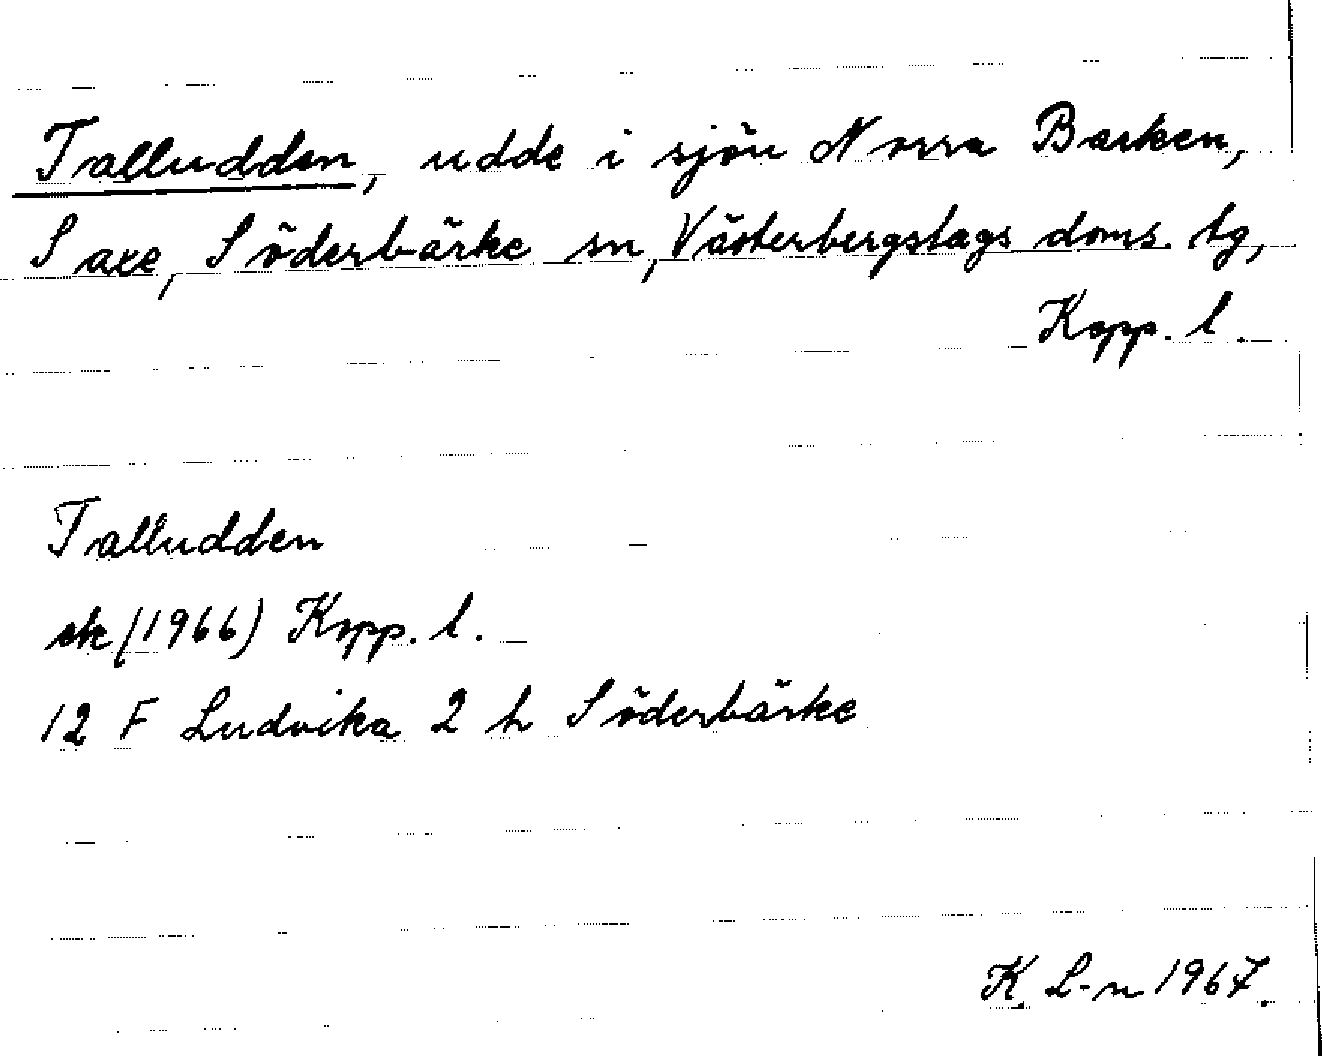 Talludden, udde i sjön Norra Barken,
Saxe, Söderbärke sn, Västerbergslags doms. tg,
Kopp. l.
Talludden
ek (1966) Kopp. l.
12 F Ludvika 2 h Söderbärke
K. L-n 1967.